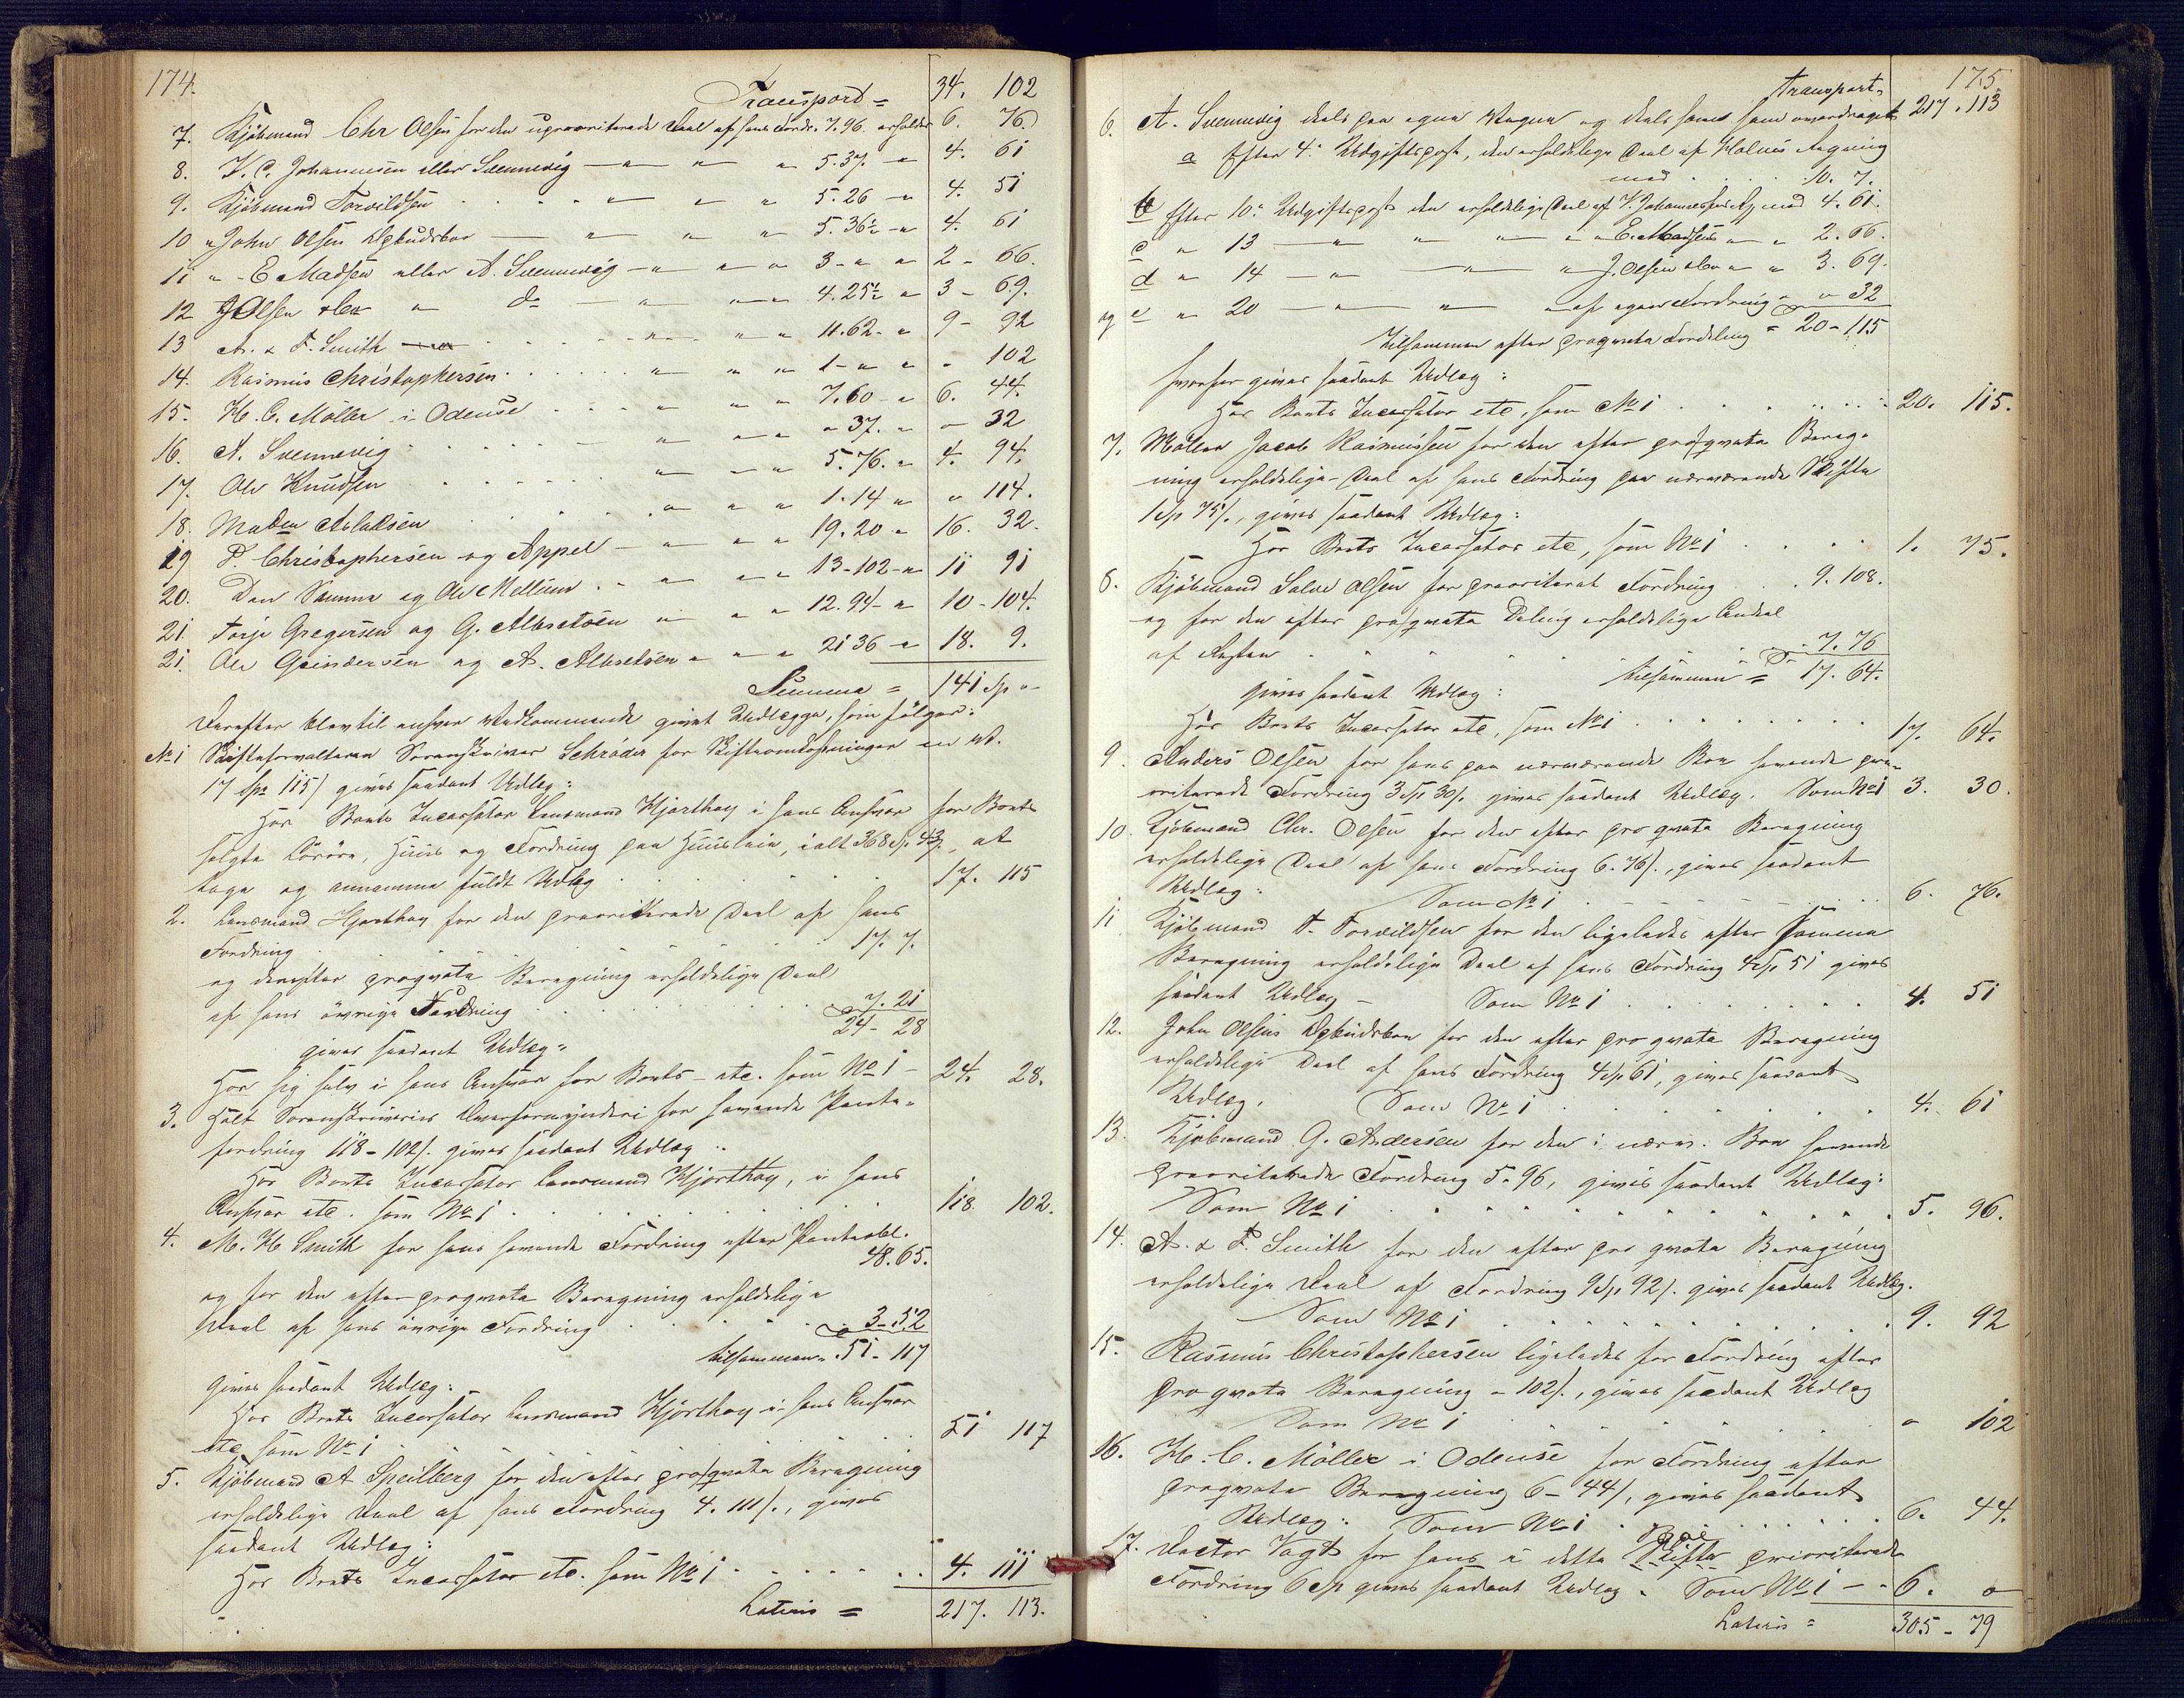 174.
Transport = 34. 102
7. Kjöbmand Chr Olsen for den uprioriterede Deel af hans Fordr. 7.96. erholder 6. 76
8. J. C. Johannesen eller Svennevig — " " " 5.37. " 4. 61
9. Kjöbmand Torvildsen . . . . " " " 5.26 " 4. 51
10 " John Olsen Opbudsbo — " " " 5.36½ " 4. 61
11 " E Madsen eller A. Svennevig — " " " 3 - " " 2 - 66.
12 J Olsen " do — " " " 4.25½ " 3 - 69.
13 A. & F. Smith . . . . " " " 11.62 - " 9 - 92
14. Rasmus Christophersen . . . . " " " 1 - " " " 102
15. H. C. Möller i Odense . . . " " " 7.60 - " 6. 44.
16. A. Svennevig . . . . — " " " " 37. " " 32
17. Ole Knudsen . . . . " " " 5.76. " 4. 94.
18. Aslaksen . . . . " " " 1.14 " " 114.
19 P. Christophersen og Appel — " " " 19.20 " 16. 32.
20. Den Samme og Ole Mellum . . " " " 13-102 - " 11 91
21. Terje Gregersen og G. Albretsen " " " 12.94 - " 10 - 104.
21. Ole Gundersen og A. Albretsen " " " 21 36 - " 18. 9.
Summa = 141 Sp " -
Derefter blev til enhver Vedkommende givet Udlægge, som fölger:
No 1 Skifteforvalteren Sorenskriver Schröder for Skifteomkostninger
17 Spd 115/ gives saadant Udlæg:
Hos Boets Incassator Lensmand Hjorthøy i hans Ansvar for Boets
solgte Lösöre, Huus og Fordring paa Huusleie, ialt 368 Sp. 43/, at
tage og annamme fuldt Udlæg . . . . . 17. 115
2. Lensmand Hjorthøy for den prioriterede Deel af hans
Fordring . . . . . 17. 7.
og derefter pro qvota Beregning erholdelige Deel
af hans övrige Fordring . . . . . 7. 21
24 - 28
gives saadant Udlæg:
Hos sig selv i hans Ansvar for Boets - etc. som No 1 - 24. 28.
3. Holt Sorenskriveries Overformynderi for havende Pante-
fordring 118 - 102/. gives saadant Udlæg:
Hos Boets Incassator Lensmand Hjorthøy, i hans
Ansvar etc. som No 1 . . . . . 118. 102.
4. M. H Smith for hans havende Fordring efter Panteobl.
48. 65.
og for den efter pro qvota Beregning erholdelige
Deel af hans övrige Fordring . . . . . 3 - 52
tilsammen " 51 - 117
gives saadant Udlæg:
Hos Boets Incassator Lensmand Hjorthøy i hans Ansvar
etc som No 1 . . . . . 51 117
5. Kjöbmand A Speilberg for den efter pro qvota Beregning
erholdelige Deel af hans Fordring 4. 111/., gives
saadant Udlæg:
Hos Boets Incassator etc. som No 1 . . . . . 4. 111
Lateris = 217. 113.
175
Transport = 217. 113
6. A. Svennevig deels paa egne Vegne og deels som overdraget
a Efter 4de Udgiftspost, den erholdelige Deel af Holms Regning
med . . . 10. 7.
b Efter 10de Udgiftspost den erholdelige Deel af J. Johannesens med 4. 61.
c " 13 — " — " — " " E. Madsens " " 2. 66.
d " 14 — " — " — " J. Olsen " " 3. 69.
og e " 20 — " — " — " af egen Fordring " " 32
Tilsammen efter pro qvota Fordeling = 20 - 115
hvorfor gives saadant Udlæg:
Hos Boets Incassator etc, som No 1 . . . . . 20. 115.
7. Möller Jacob Rasmussen for den efter pro qvota Bereg-
ning erholdelige Deel af hans Fordring paa nærværende Skifte
1 Sp 75/., gives saadant Udlæg:
Hos Boets Incassator etc, som No 1 . . . . 1. 75.
8. Kjöbmand Salve Olsen for prioriteret Fordring . . 9. 108.
og for den efter pro qvota Deling erholdelige Andeel
af Resten . . . . . 7. 76
tilsammen = 17. 64.
gives saadant Udlæg:
Hos Boets Incassator etc, som No 1 . . . . . 17. 64.
9. Anders Olsen for hans paa nærværende Boe havende pri-
oriterede Fordring 3 Sp 30/. gives saadant Udlæg. Som No 1 3. 30.
10. Kjöbmand Chr. Olsen for den efter pro qvota Beregning
erholdelige Deel af hans Fordring 6. 76/., gives saadant
Udlæg: Som No 1 . . . . . 6. 76.
11 Kjöbmand T. Torvildsen for den ligeledes efter samme
Beregning erholdelige Deel af hans Fordring 4 Sp. 51 gives
saadant Udlæg - Som No 1 . . . . . 4. 51
12. John Olsens Opbudsboe for den efter pro qvota Beregning
erholdelige Deel af hans Fordring 4 Sp 61, gives saadant
Udlæg. Som No 1 . . . . . 4. 61
13. Kjöbmand G. Andersen for den i nærv. Boe havende
prioriterede Fordring 5 - 96, gives saadant Udlæg:
Som No 1 . . . . . 5. 96.
14. A. & F. Smith for den efter pro qvota Beregning
erholdelige Deel af Fordring 9 Sp. 92/. gives saadant Udlæg.
Som No 1 . . . . . 9. 92
15. Rasmus Christophersen ligeledes for Fordring efter
pro qvota Beregning " 102/., gives saadant Udlæg
Som No 1 . . . . . " 102
16. H. C. Möller i Odense for Fordring efter
pro qvota Beregning 6 - 44/, gives saadant
Udlæg: Som No 1 . . . . . 6. 44.
17. Doctor Vogt for hans i dette Boe Skifte prioriterede
Fordring 6 Sp gives saadant Udlæg. Som No 1 - - 6. "
Lateris = 305 - 79